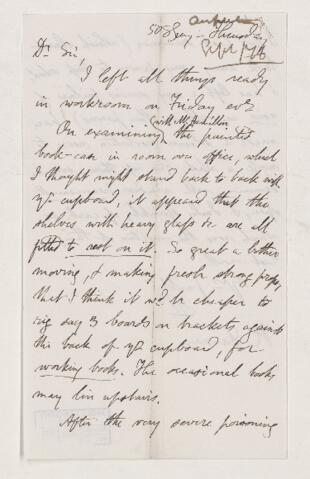 Dr Sir,
I left all things ready
in workroom on Friday eve
(with Mr Hamilton
On examining the painted
book-case in room over office, which
I thought might stand back to back with
yr cupboard, it appeared that the
shelves with heavy glass &c are all
fitted to rest on it. So great a bother
moving, & making fresh strong props,
that I think it wd be cheaper to
rig say 3 boards on brackets against
the back of yr cupboard, for
working books. The occasional books
may live upstairs.
After the very severe poisoning